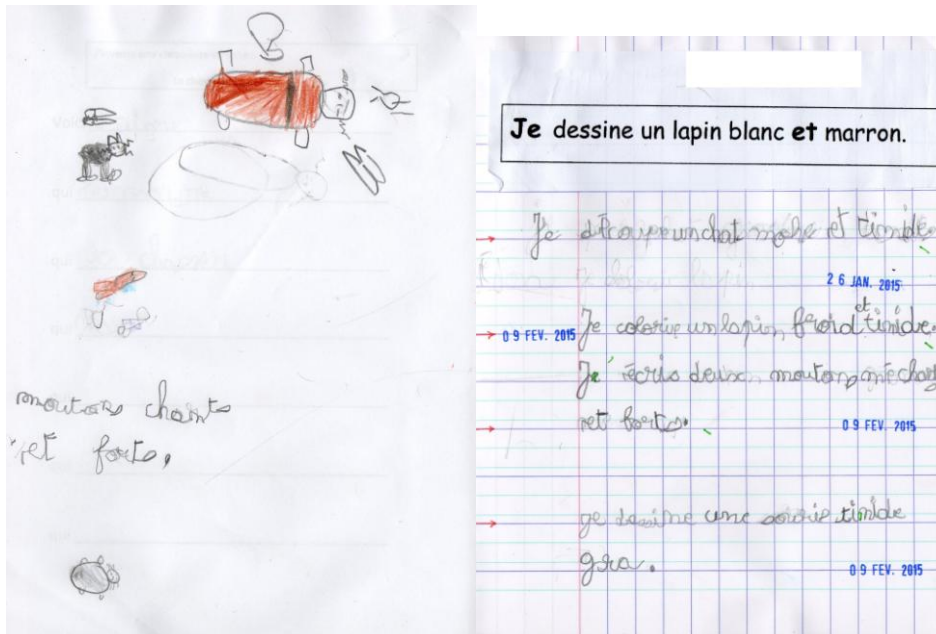 moutons chants
et forts,
Je dessine un lapin blanc et marron.
Je découpe un chat moche et timide.
26 JAN. 2015
et
09 FEV. 2015 Je colorie un lapin froid timide.
Je écris deux moutons méchant
et forts.
09 FEV. 2015
ge dessine une souris timide
gra.
09 FEV. 2015